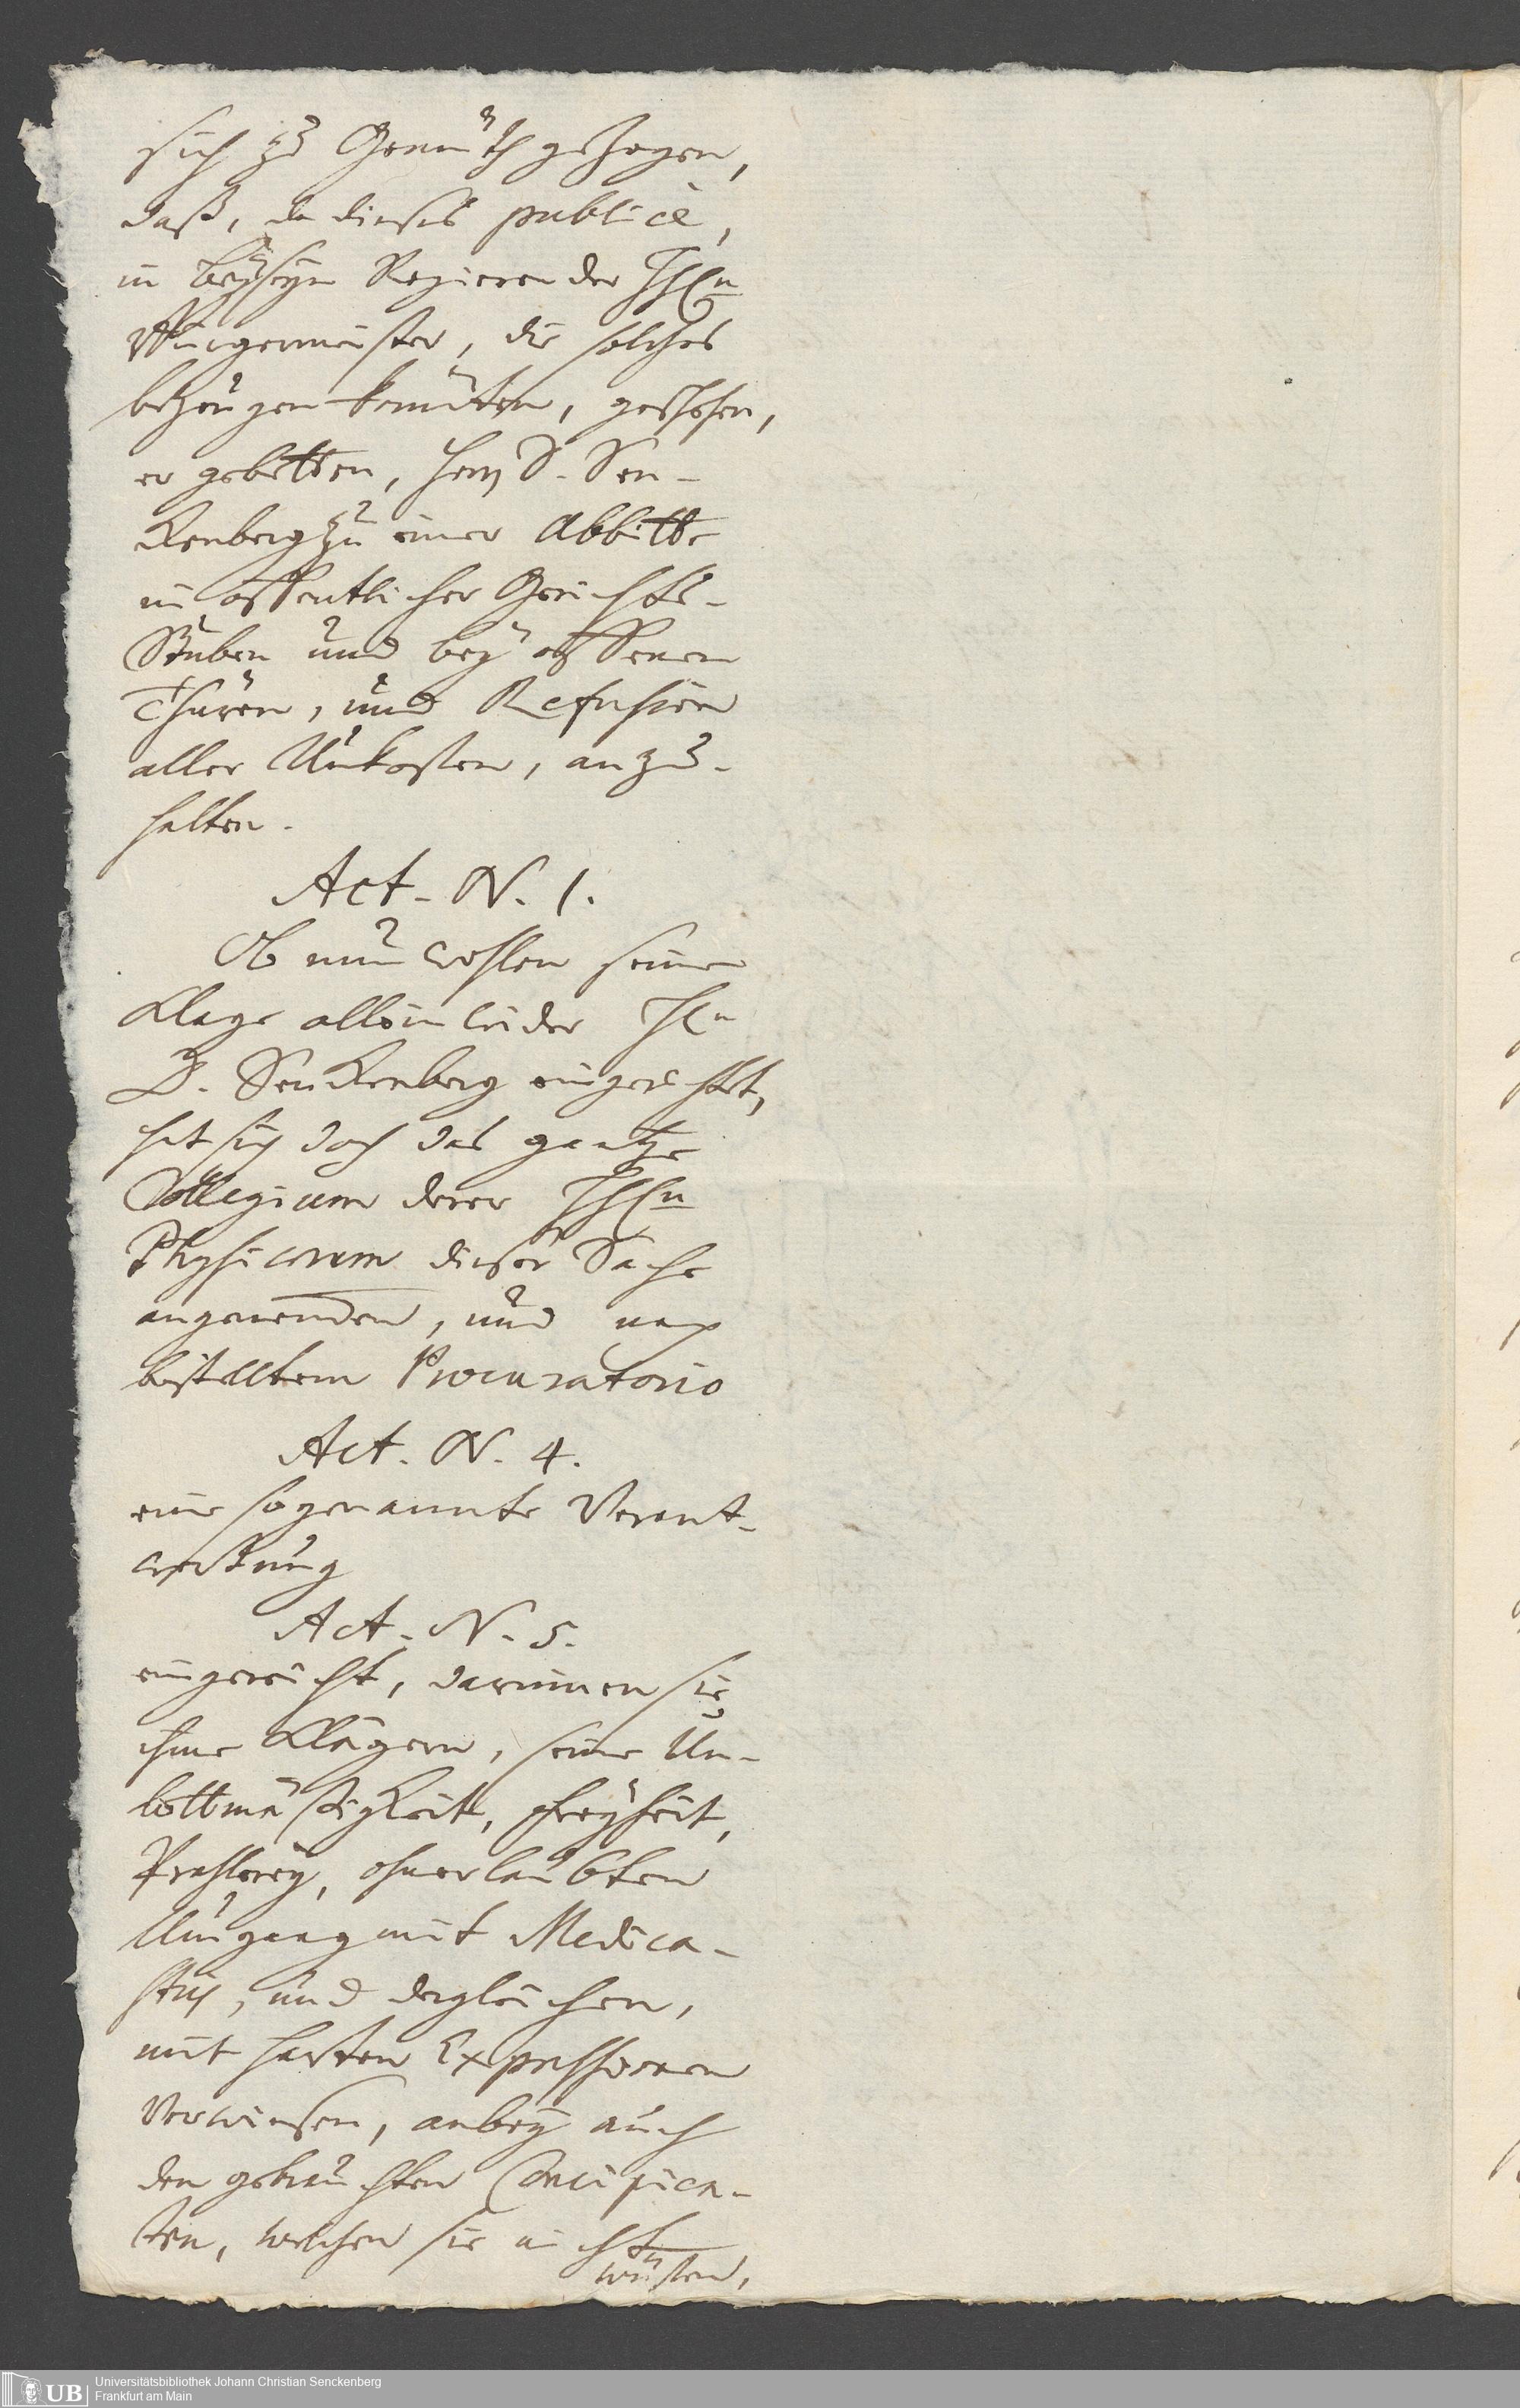 sich zu Gemüth gezogen,
daß, da dieses publice,
in Beyseyn Regierender HHEn
Bürgermeister, die solches
bezeugen könnten, geschehen,
er gebetten, Herrn D. Sen-
kenberg zu einer Abbitte
in öffentlicher Gerichts-
Stuben und bey offenen
Thüren, und Refusion
aller Unkosten, anzu-
halten.
Act. N. 1.
Ob nun wohlen seine
Klage allein wider HEn
D. Senckenberg eingerichtet,
hat sich doch das gantze
Collegium derer HHEn
Physicorum dieser Sache
angenommen, und nach
bestelltem Procuratorio
Act. N. 4.
eine sogenannte Verant-
wortung
Act. N. 5.
eingereicht, darinnen sie
ihme Klägern, seine Un-
bottmäßigkeit, Freyheit,
Prahlerey, ohnerlaubten
Umgang mit Medica-
stris, und dergleichen,
mit harten Expressionen
verwiesen, anbey auch
den gebrauchten Concipien-
ten, welchen sie nicht
wüsten,
Universitätsbibliothek Johann Christian Senckenberg
Frankfurt am Main
UB